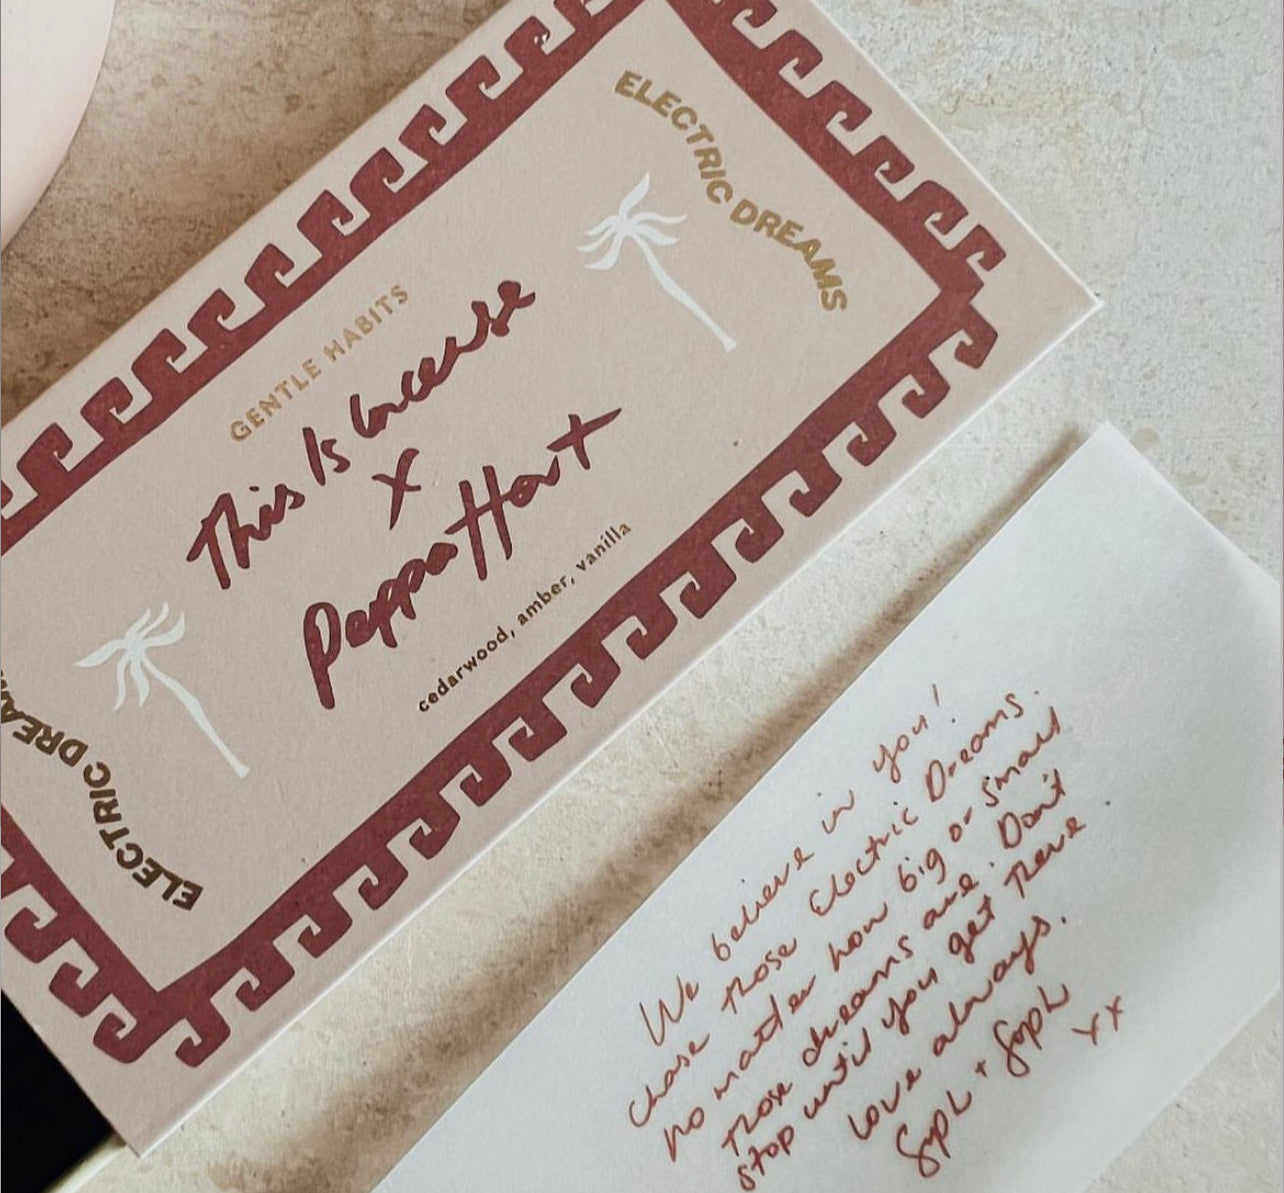 ELECTRIC DREAMS
GENTLE HABITS
This Is Incense
x
Peppa Hart
cedarwood, amber, vanilla
ELECTRIC DREAM
We believe in you!
Chase those Electric Dreams.
no matter how big or small
those dreams are. Don't
stop until you get there
love always.
+
xx